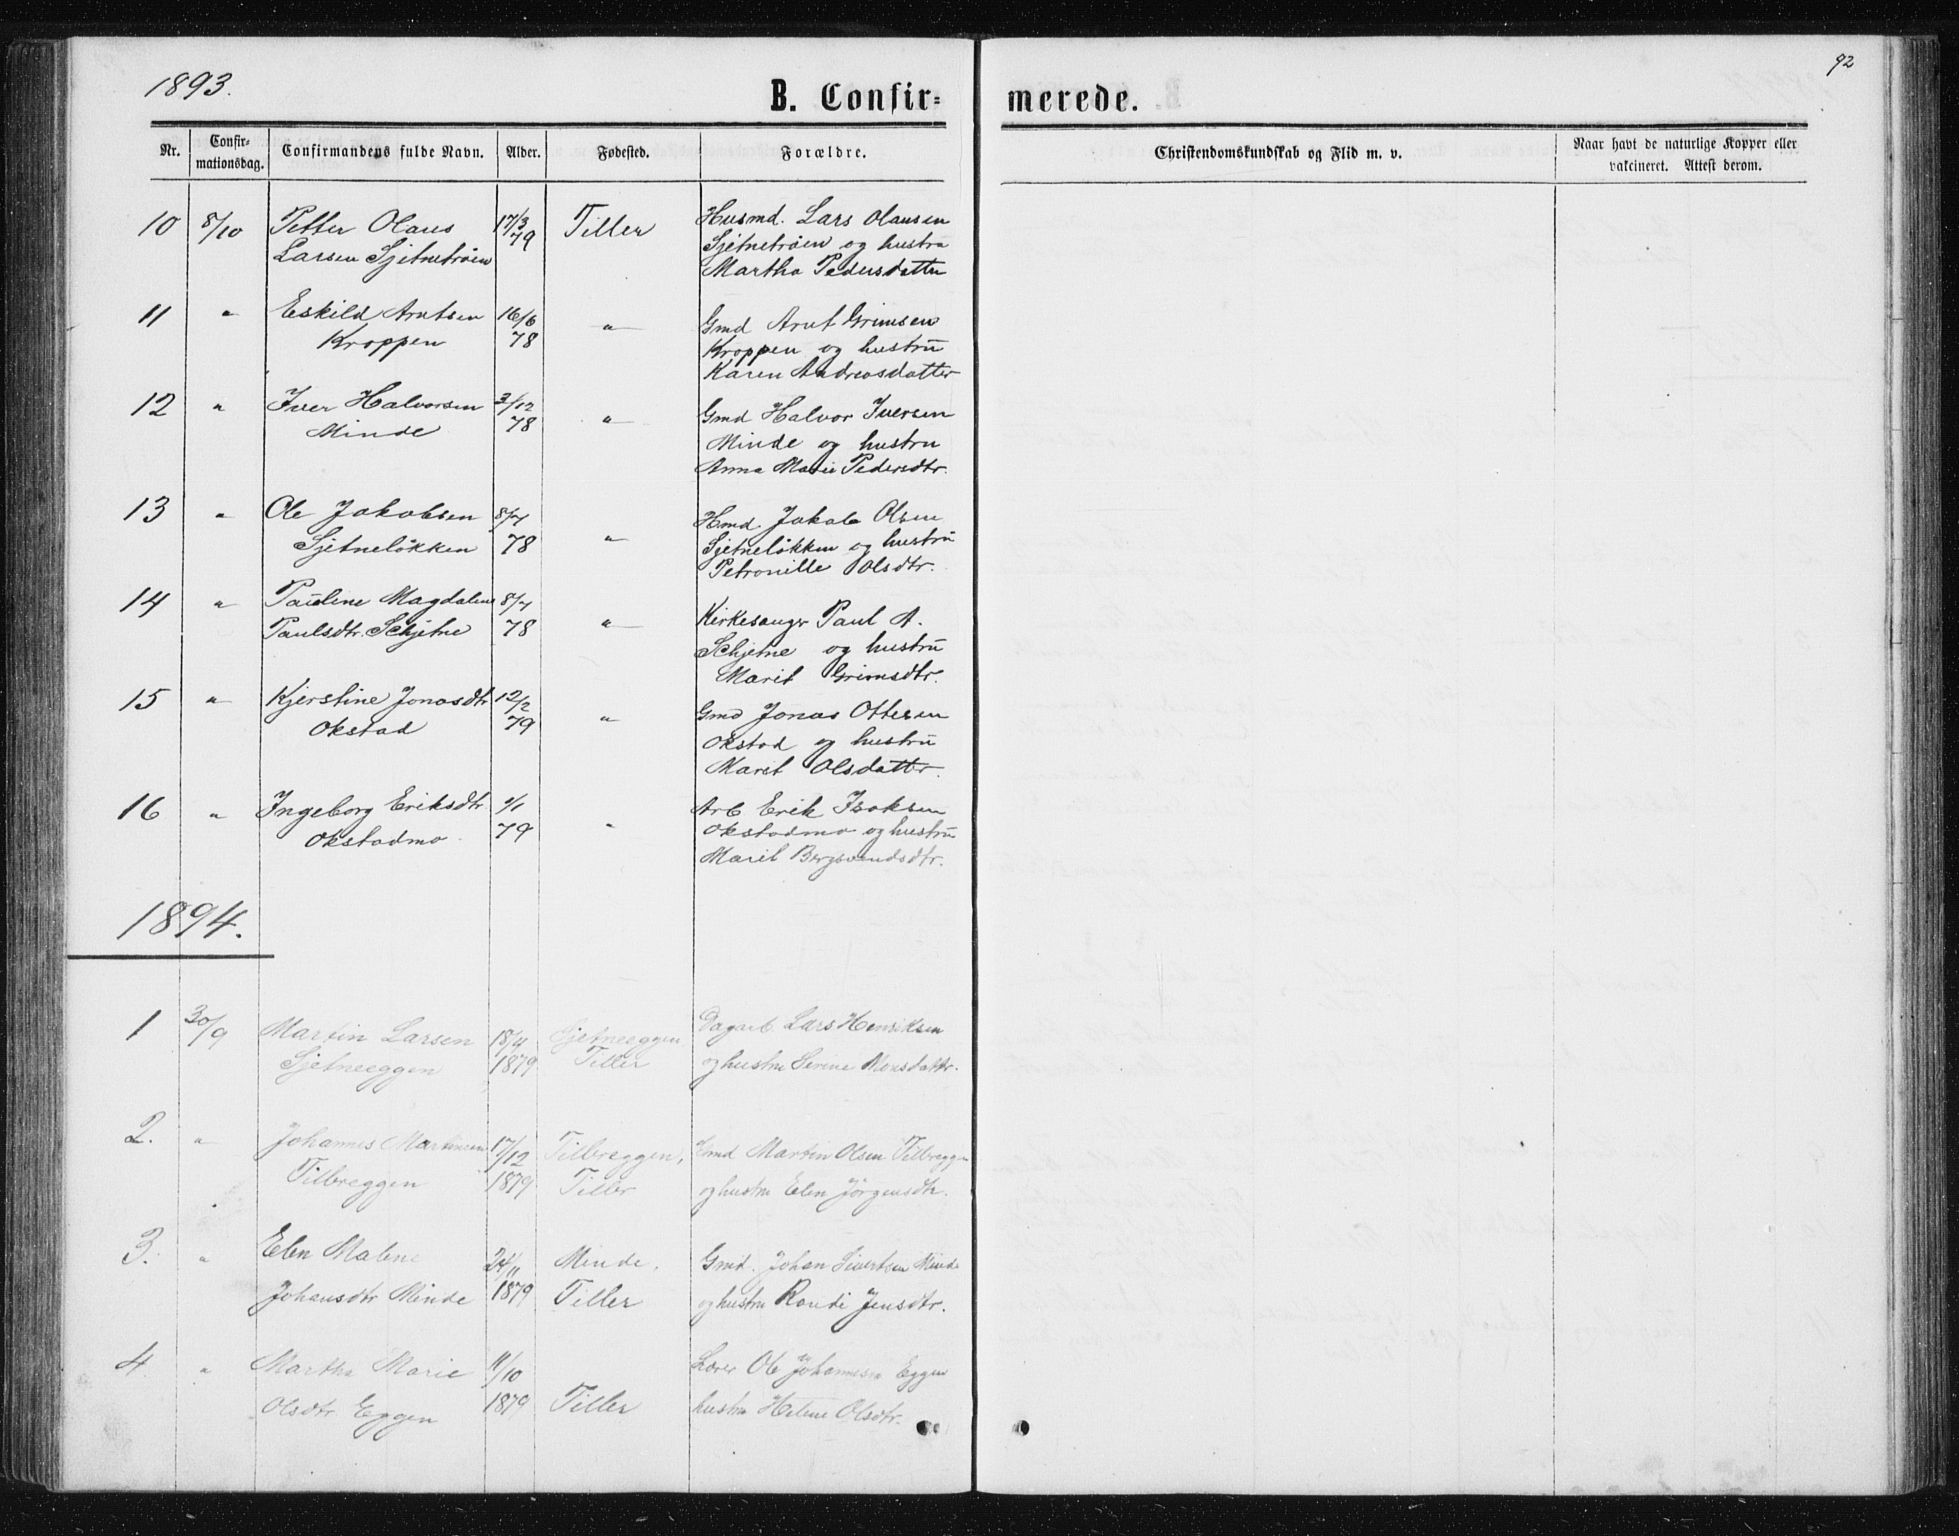 1893.
92
B. Confir-
merede.
Nr.
Confir-
mationsdag.
Confirmandens fulde Navn.
Alder.
Fødested.
Forældre.
Christendomskundskab og Flid m. v.
Naar havt de naturlige Kopper eller
vakcineret. Attest derom.
10 8/10 Petter Olaus 17/3 Tiller Husmd. Lars Olausen
Larsen Sjetnetrøen 79 Sjetnetrøen og hustru
Martha Pedersdatter
11 " Eskild Arntsen 16/6 " Gmd Arnt Grimsen
Kroppen 78 Kroppen og hustru
Karen Andreasdatter
12 " Iver Halvorsen 3/12 " Gmd Halvor Iversen
Minde 78 Minde og hustru
Anna Marie Pedersdtr.
13 " Ole Jakobsen 8/7 " Hmd. Jakob Olsen
Sjetneløkken 78 Sjetneløkken og hustru
Petronille Olsdtr.
14 " Pauline Magdalene 8/7 " Kirkesanger Paul A.
Paulsdtr. Schjetne 78 Schjetne og hustru
Marit Grimsdtr.
15 " Kjerstine Jonasdtr 12/2 " Gmd Jonas Ottesen
Okstad 79 Okstad og hustru
Marit Olsdatter.
16 " Ingeborg Eriksdtr /1 " Arb Erik Isaksen
Okstadmo 79 Okstadmo og hustru
Marit Bergsvendsdtr.
1894.
1 30/9 Martin Larsen 18/4 Sjetneeggen Dagarb. Lars Henriksen
Sjetneeggen 1879 Tiller og hustru Serine Monsdattr.
2. " Johannes Martinsen 17/12 Tillereggen, Gmd Martin Olsen Tillereggen
Tillereggen 1879 Tiller og hustru Elen Jørgensdtr.
3. " Elen Malene 24/11 Minde, Gmd. Johan Sivertsen Minde
Johansdtr Minde 1879 Tiller og hustru Randi Jensdtr.
4. " Martha Marie 11/10 Lærer Ole Johannesen Eggen
Olsdtr Eggen 1879 Tiller hustru Helene Olsdtr.